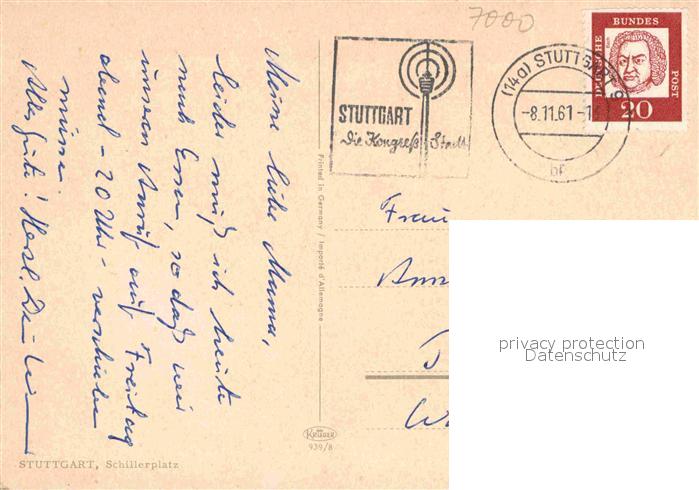 Meine liebe Mama,
leider muß ich heute
nach Essen, so daß wir
unseren Anruf auf Freitag
abend - 20 Uhr - verschieben
müssen.
Alles Gute! Herzl. Dein
7000
STUTTGART
Die Kongreß Stadt
(14a) STUTTGART 9
-8.11.61-1
bf
DEUTSCHE
BUNDES
POST
20
Frau
Ann
privacy protection
Datenschutz
Printed in Germany / Importé d'Allemagne
KRÜGER
939/8
STUTTGART, Schillerplatz